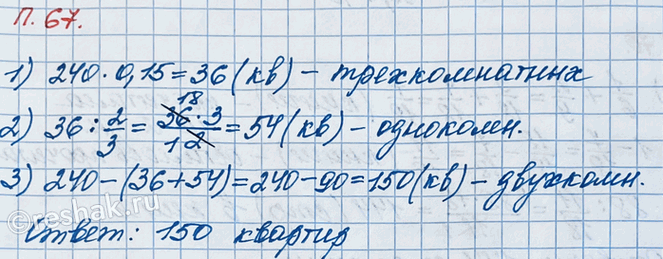 П. 67.
1) 240 · 0,15 = 36 (кв) – трехкомнатных
2) 36 : 2/3 = 36 · 3 / 1 2 = 54 (кв) – однокомн.
18
3) 240 – (36 + 54) = 240 – 90 = 150 (кв) – двухкомн.
Ответ: 150 квартир
©reshak.ru